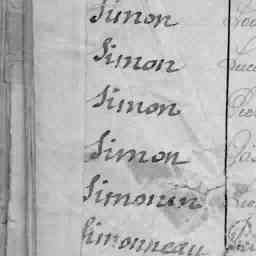 Simon
Simon
Simon
Simon
Simonin
Simonneau